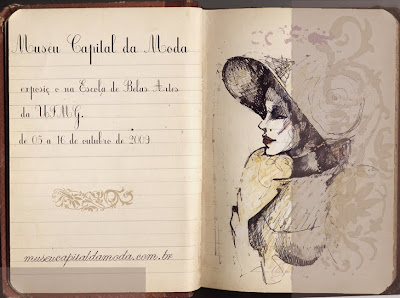 Museu Capital da Moda
exposiç e na Escola de Belas Artes
da UFMG.
de 05 a 16 de outubro de 2009
museucapitaldamoda.com.br